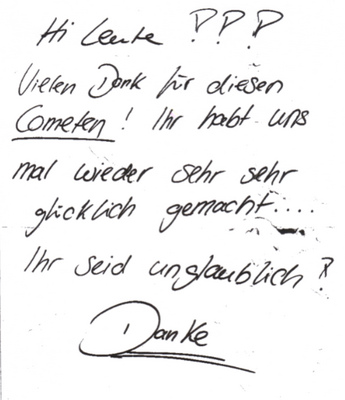 Hi Leute !!!
Vielen Dank für diesen
Cometen! Ihr habt uns
mal wieder sehr sehr
glücklich gemacht....
Ihr seid unglaublich!
Danke